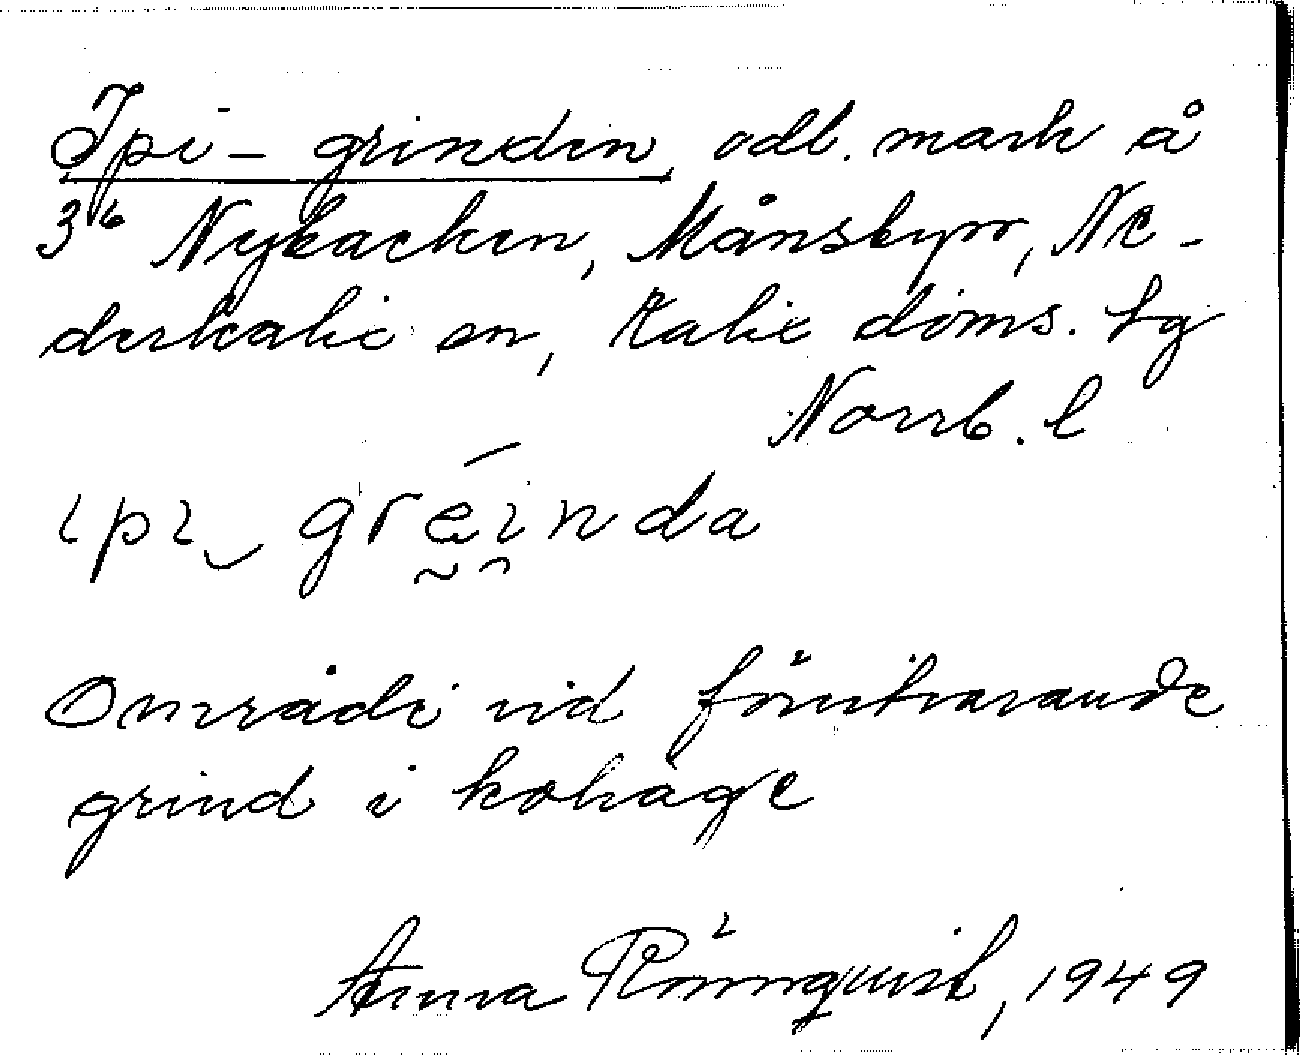 Ipi-grinden, odl. mark å
3⁶ Nybacken, Månsbyn, Ne-
derkalix sn, Kalix doms. tg
Norrb. l
ıpı‿grḛında
Område vid förutvarande
grind i kohage
Anna Rönnquist, 1949